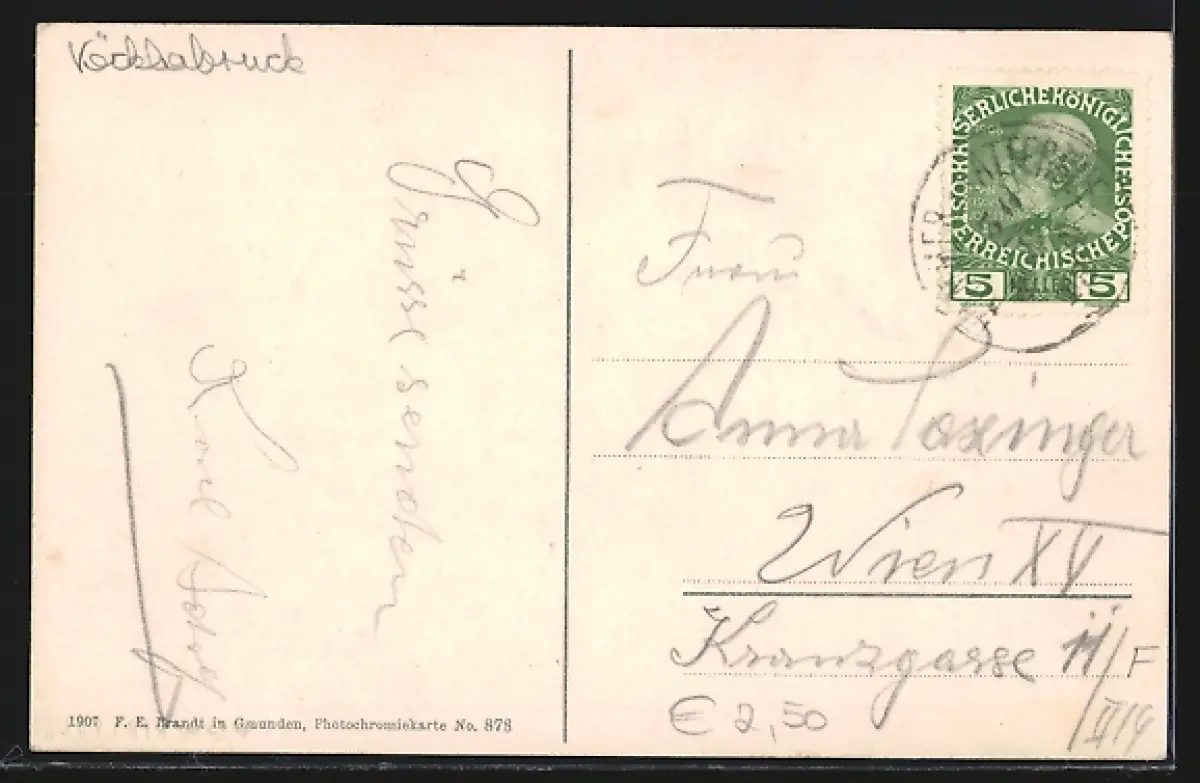 Vöcklabruck
Grüsse senden
Karl
1907 F. E. Brandt in Gmunden, Photochromiekarte No. 878
KAISERLICHE KÖNIGLICHE ÖSTERREICHISCHE POST
1908
5 HELLER 5
Frau
Anna Paxinger
Wien XV
Kranzgasse 11/F
II/14
€ 2,50